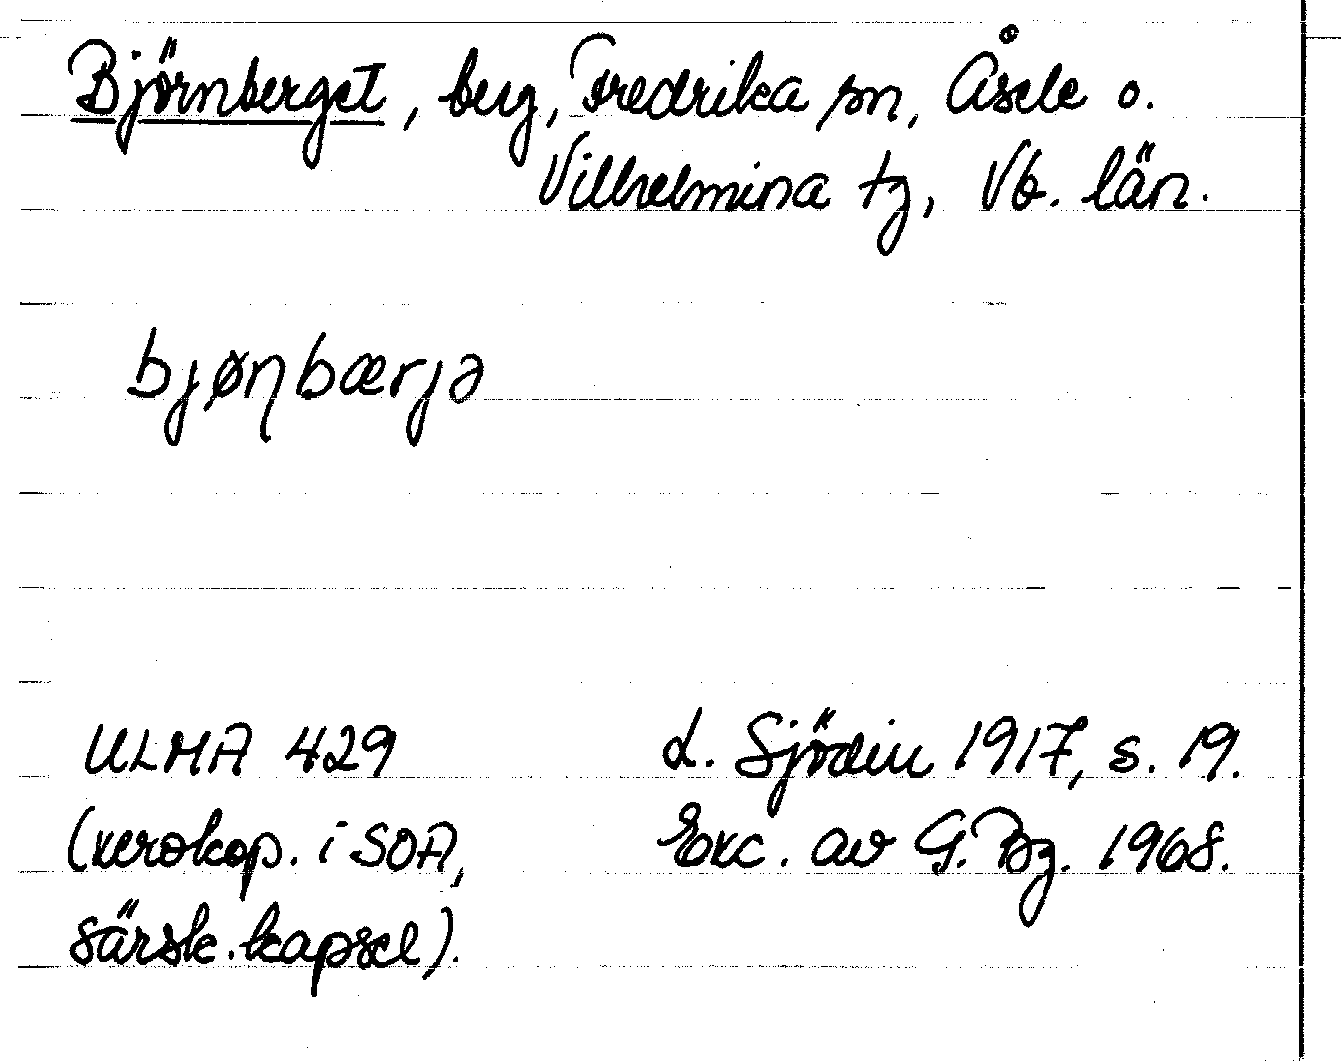 Björnberget, berg, Fredrika sn, Åsele o.
Vilhelmina tg, Vb. län.
bjøɳbærjə
ULMA 429
(xerokop. i SOA,
särsk. kapsel).
L. Sjödin 1917, s. 19.
Exc. av G. Bg. 1968.